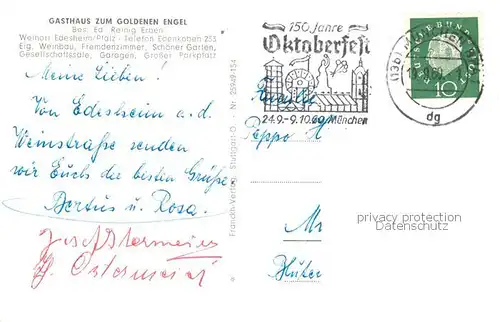 GASTHAUS ZUM GOLDENEN ENGEL
Bes. Ed. Reinig Erben
Weinort Edesheim/Pfalz - Telefon Edenkoben 253
Eig. Weinbau, Fremdenzimmer, Schöner Garten,
Gesellschaftssäle, Garagen, Großer Parkplatz
Meine Lieben!
Von Edesheim a. d.
Weinstraße senden
wir Euch die besten Grüße
Bertus u. Rosa.
Josef Ostermeier
Ostermeier
Franckh-Verlag, Stuttgart-O. - Nr. 25949-154
150 Jahre
Oktoberfest
24.9.-9.10.60 München
DEUTSCHE BUNDESPOST
10
(13b) MÜNCHEN
dg
Familie
Peppo
privacy protection
Datenschutz